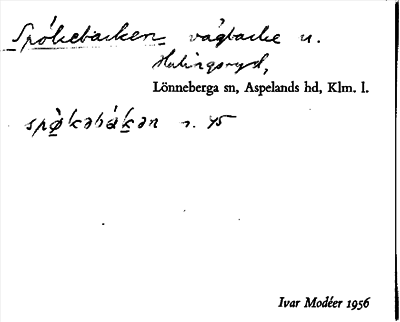 Spökebacken vägbacke n.
Hulingsryd,
Lönneberga sn, Aspelands hd, Klm. l.
spø̀kəbákən n. 45
Ivar Modéer 1956